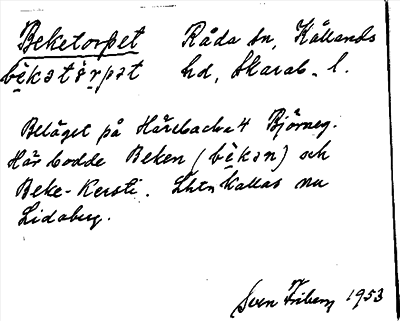 Beketorpet Råda sn, Kållands
bèkatårpat hd, Skarab. l.
Beläget på Häsebacka 4 Björneg.
Här bodde Beken (bèkan) och
Beke-Kersti. Lhtn kallas nu
Lidaberg.
Sven Friberg 1953